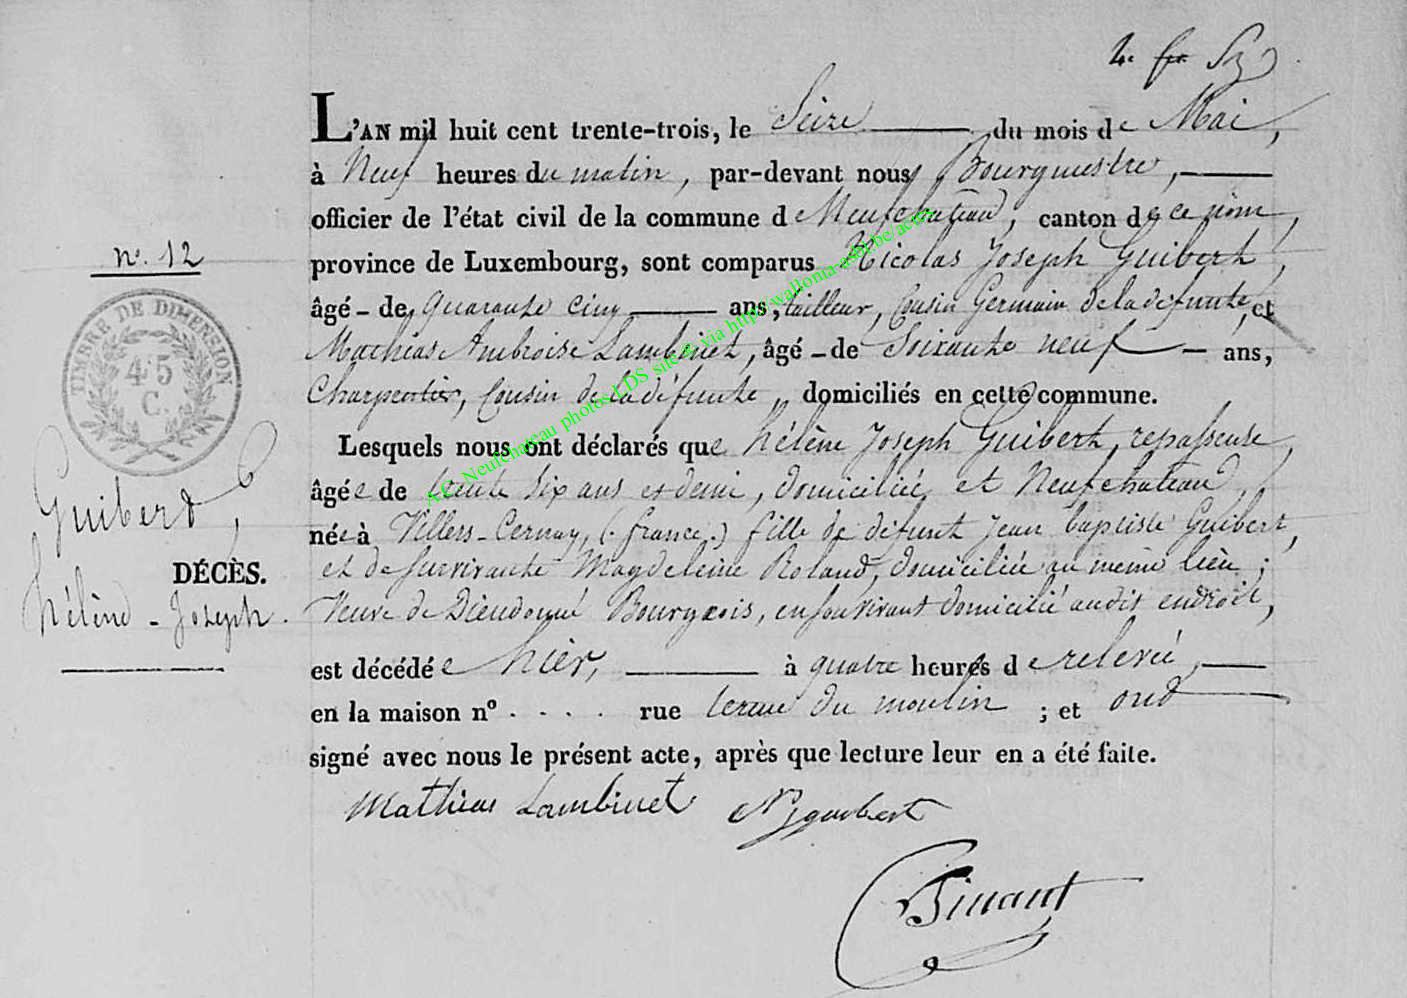 L'AN mil huit cent trente-trois, le Seize du mois de Mai,
à Neuf heures du matin, par-devant nous Bourgmestre,
officier de l'état civil de la commune de Neufchateau, canton de ce nom,
province de Luxembourg, sont comparus Nicolas Joseph Guibert,
âgé - de quarante cinq ans, tailleur, Cousin Germain de la défunte, et
Mathias Ambroise Lambinet, âgé - de Soixante neuf - ans,
Charpentier, Cousin de la défunte, domiciliés en cette commune.
Lesquels nous ont déclarés que hélène Joseph Guibert, repasseuse,
âgée de trente Six ans et demi, domiciliée et Neufchateau,
née à Villers-Cernay, (france.) fille de défunt Jean baptiste Guibert,
et de survivante Magdeleine Roland, domiciliée au même lieu ;
Veuve de Dieudonné Bourgeois, en son vivant domicilié audit endroit,
est décédée hier, à quatre heures de relevée,
en la maison n° . . . . rue terme du moulin ; et ont
signé avec nous le présent acte, après que lecture leur en a été faite.
Mathias Lambinet NJ guibert
n°. 12
TIMBRE DE DIMENSION
45
C.
Guibert,
DÉCÈS.
hélène - Joseph.
A.C. Neufchateau photos LDS site & via http://wallonia-asbl.be/actes